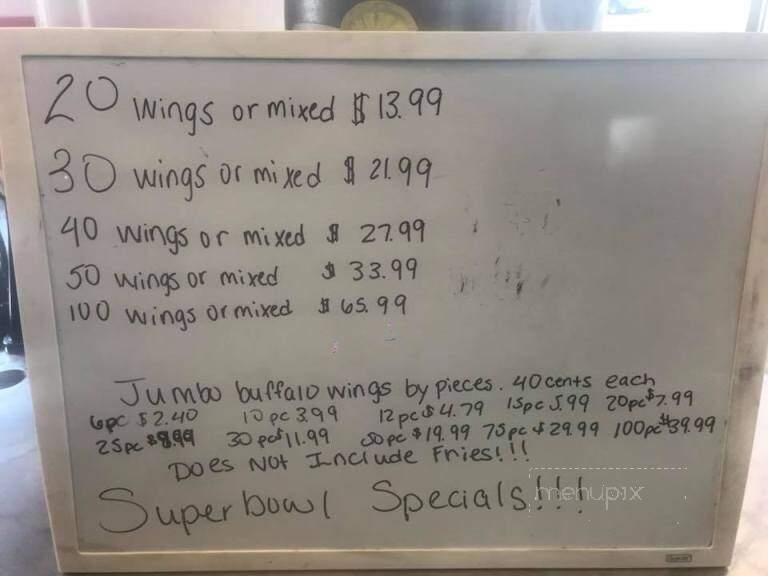 20 wings or mixed $ 13.99
30 wings or mixed $ 21.99
40 wings or mixed $ 27.99
50 wings or mixed $ 33.99
100 wings or mixed $ 65.99
Jumbo buffalo wings by pieces. 40 cents each
6pc $2.40 10 pc 3.99 12 pc $4.79 15pc 5.99 20pc $7.99
25pc 30 pc $11.99 50 pc $19.99 75pc $29.99 100pc $39.99
Does Not Include Fries!!!
Superbowl Specials!!!
menupix